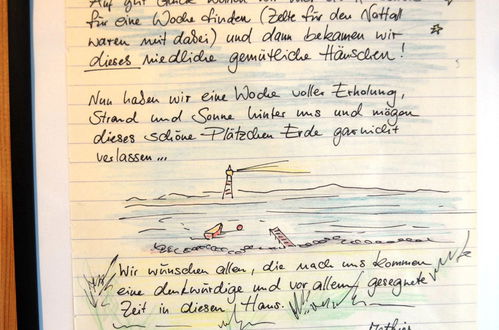 Auf gut Glück wollten wir
für eine Woche finden (Zelte für den Notfall
waren mit dabei) und dann bekamen wir
dieses niedliche gemütliche Häuschen!
Nun haben wir eine Woche voller Erholung,
Strand und Sonne hinter uns und mögen
dieses schöne Plätzchen Erde gar nicht
verlassen...
Wir wünschen allen, die nach uns kommen
eine denkwürdige und vor allem gesegnete
Zeit in diesem Haus.